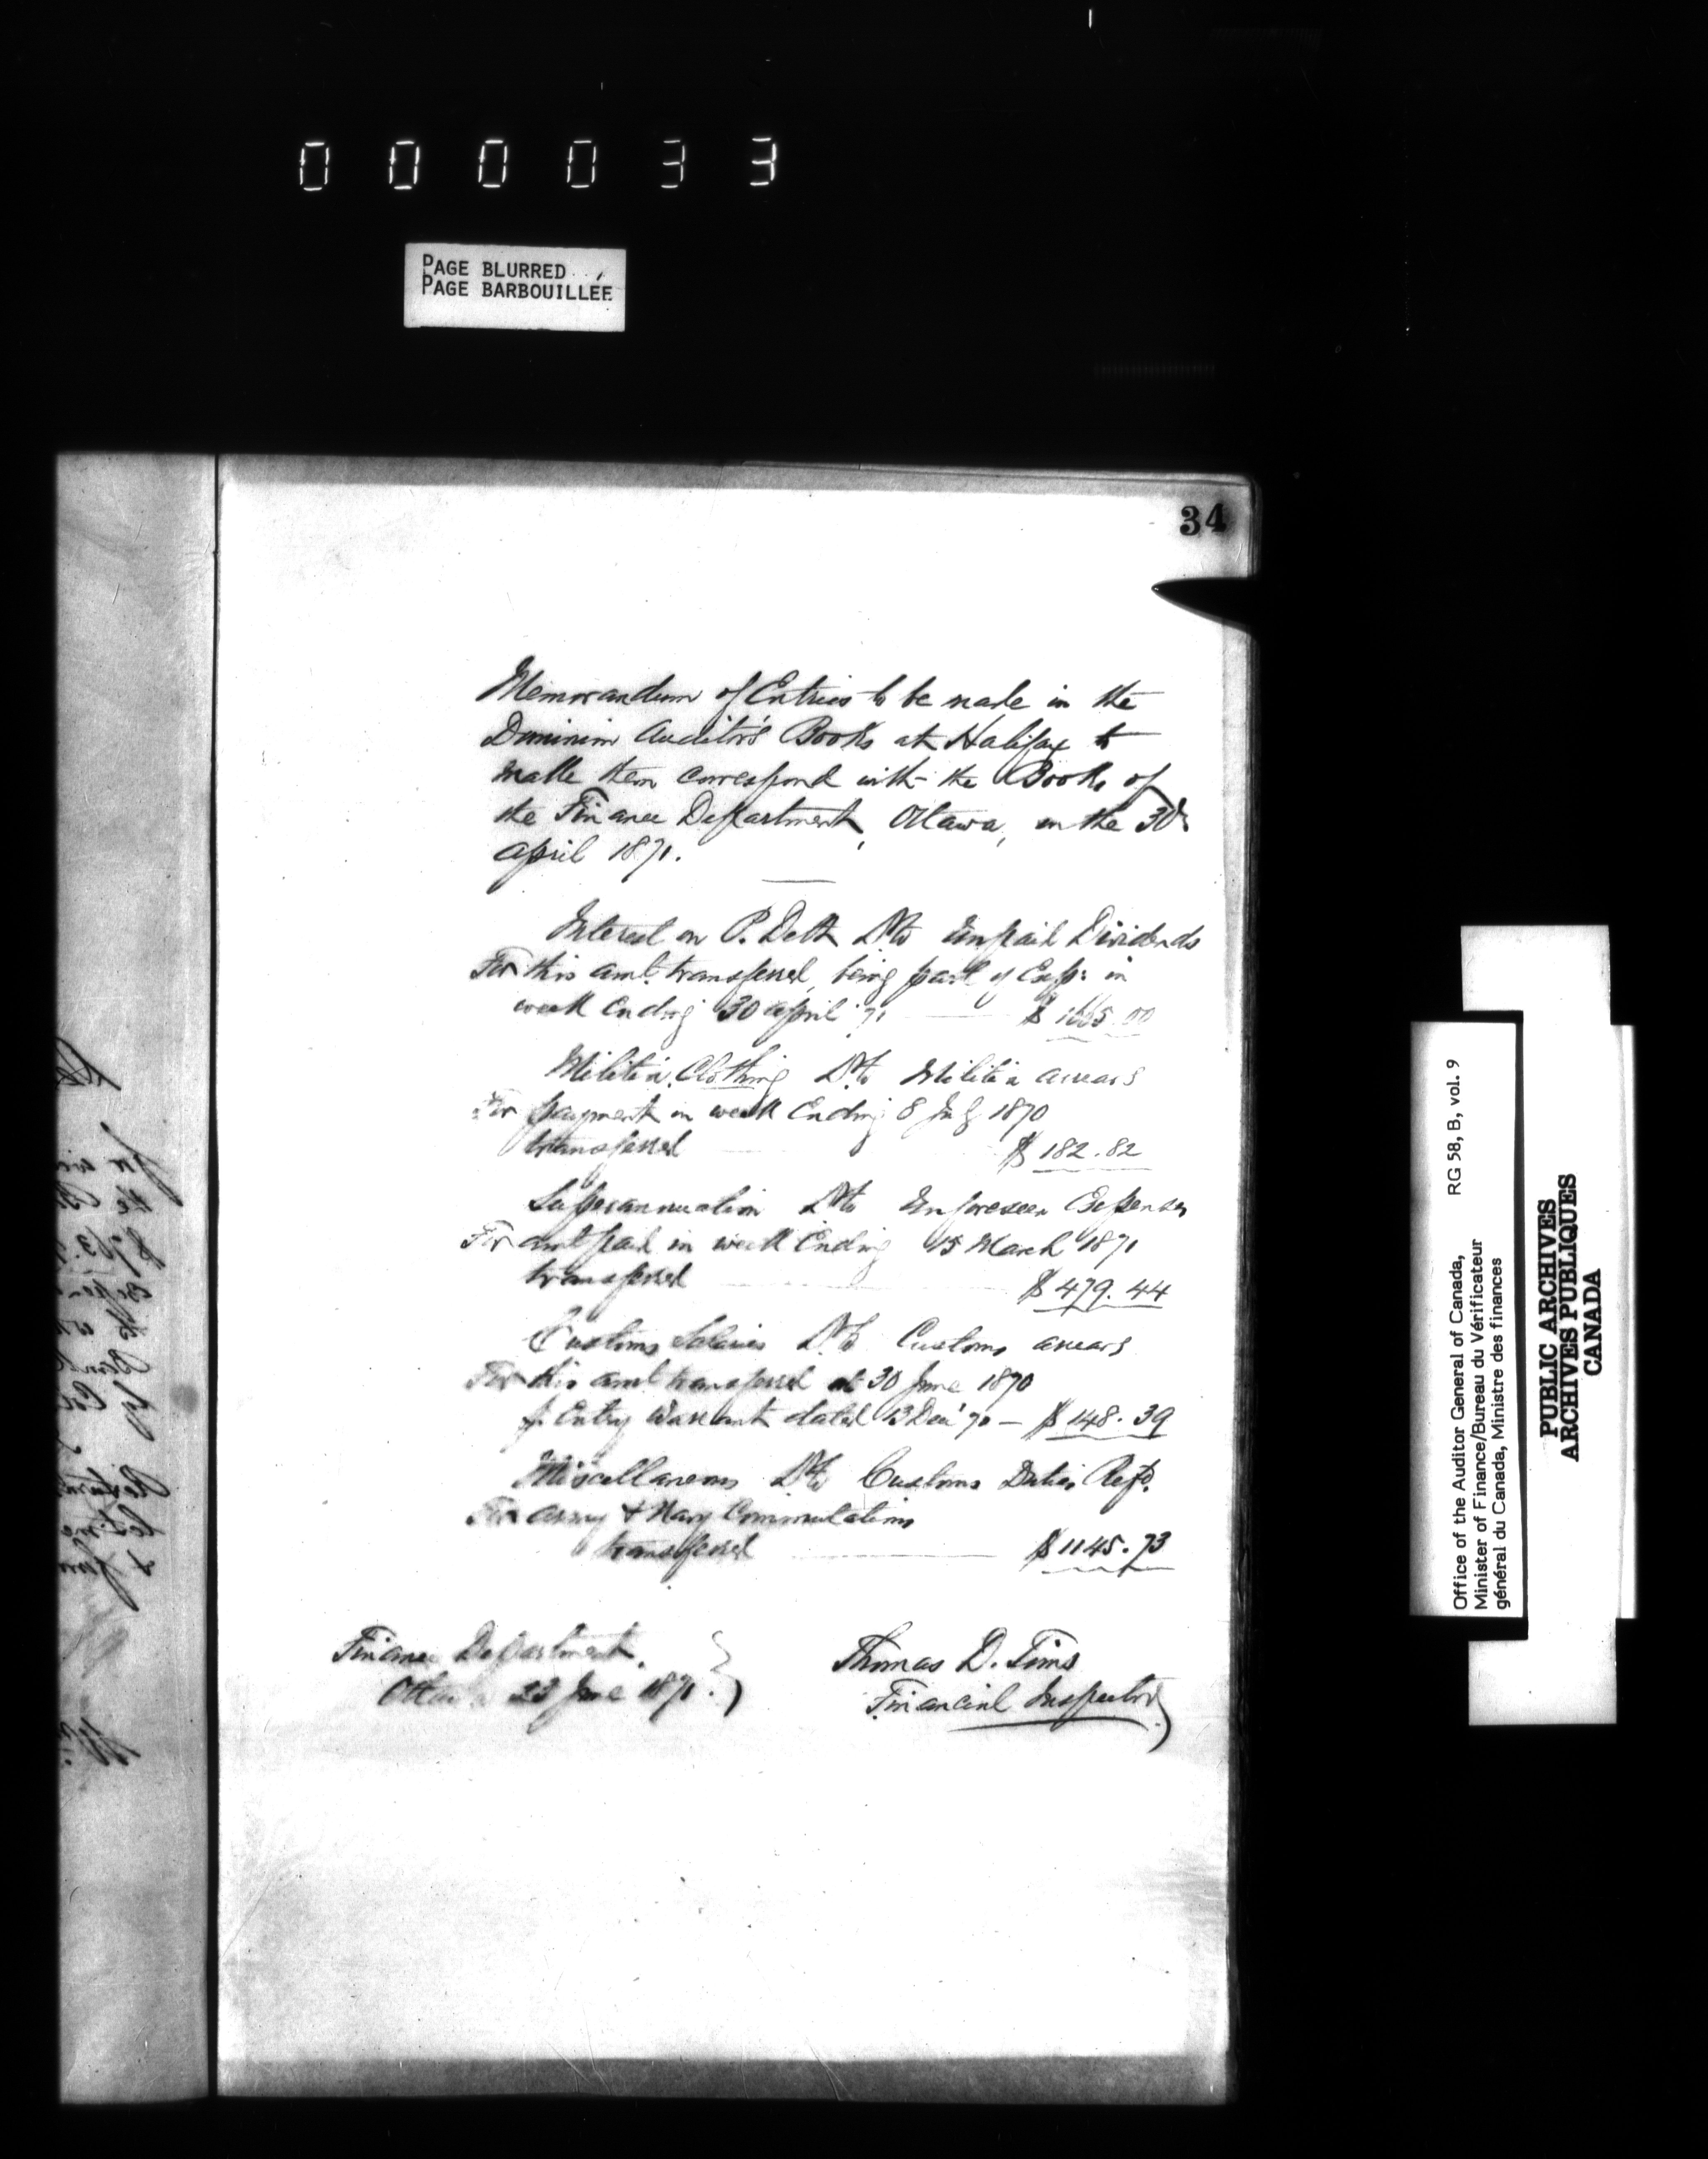 000033
PAGE BLURRED
PAGE BARBOUILLÉE
34
Memorandum of Entries to be made in the
Dominion Auditor's Books at Halifax to
make them correspond with the Books of
the Finance Department, Ottawa, on the 30th
April 1871.
Interest on P. Debt Dr to Unpaid Dividends
For this amt. transferred, being part of Exp: in
week Ending 30 April '71 $ 1665.00
Militia Clothing Dr to Militia arrears
For payment in week Ending 8 July 1870
transferred $ 182.82
Superannuation Dr to Unforeseen Expenses
For amt paid in week Ending 15 March 1871
transferred $ 479.44
Customs Salaries Dr to Customs arrears
For this amt transferred at 30 June 1870
p. Entry Warrant dated 13 Decr 70 — $ 148.39
Miscellaneous Dr to Customs Duties Refd.
For Army & Navy Commutations
transferred $ 1145.73
Finance Department,
Ottawa 23 June 1871.
Thomas D. Tims
Financial Inspector
Office of the Auditor General of Canada, RG 58, B, vol. 9
Minister of Finance/Bureau du Vérificateur
général du Canada, Ministre des finances
PUBLIC ARCHIVES
ARCHIVES PUBLIQUES
CANADA